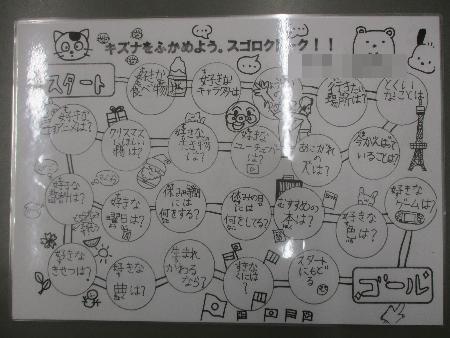 キズナをふかめよう。スゴロクトーク！！
スタート
好きな
食べ物は？
好きな
キャラクターは？
行きたい
場所は？
とくい
なことは？
今がんばって
いることは？
あこがれ
の人は？
好きな
ユーチューバー
は？
好きな
生き物
は？
クリスマス
にほしい
物は？
好きな
アニメは？
好きな
教科は？
好きな
曜日は？
休み時間
には
何をする？
休みの日
には
何をしてる？
おすすめの
本は？
好きな
色は？
好きな
ゲームは？
スタート
にもど
る
すきな
くには
？
生まれ
かわる
なら？
好きな
曲は？
好きな
きせつは？
ゴール